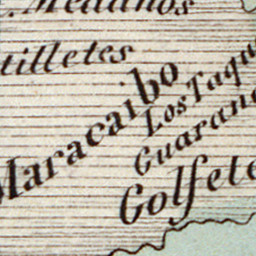 Medanos
tilletes
Maracaibo
Los Taqu
Guaran
Golfete